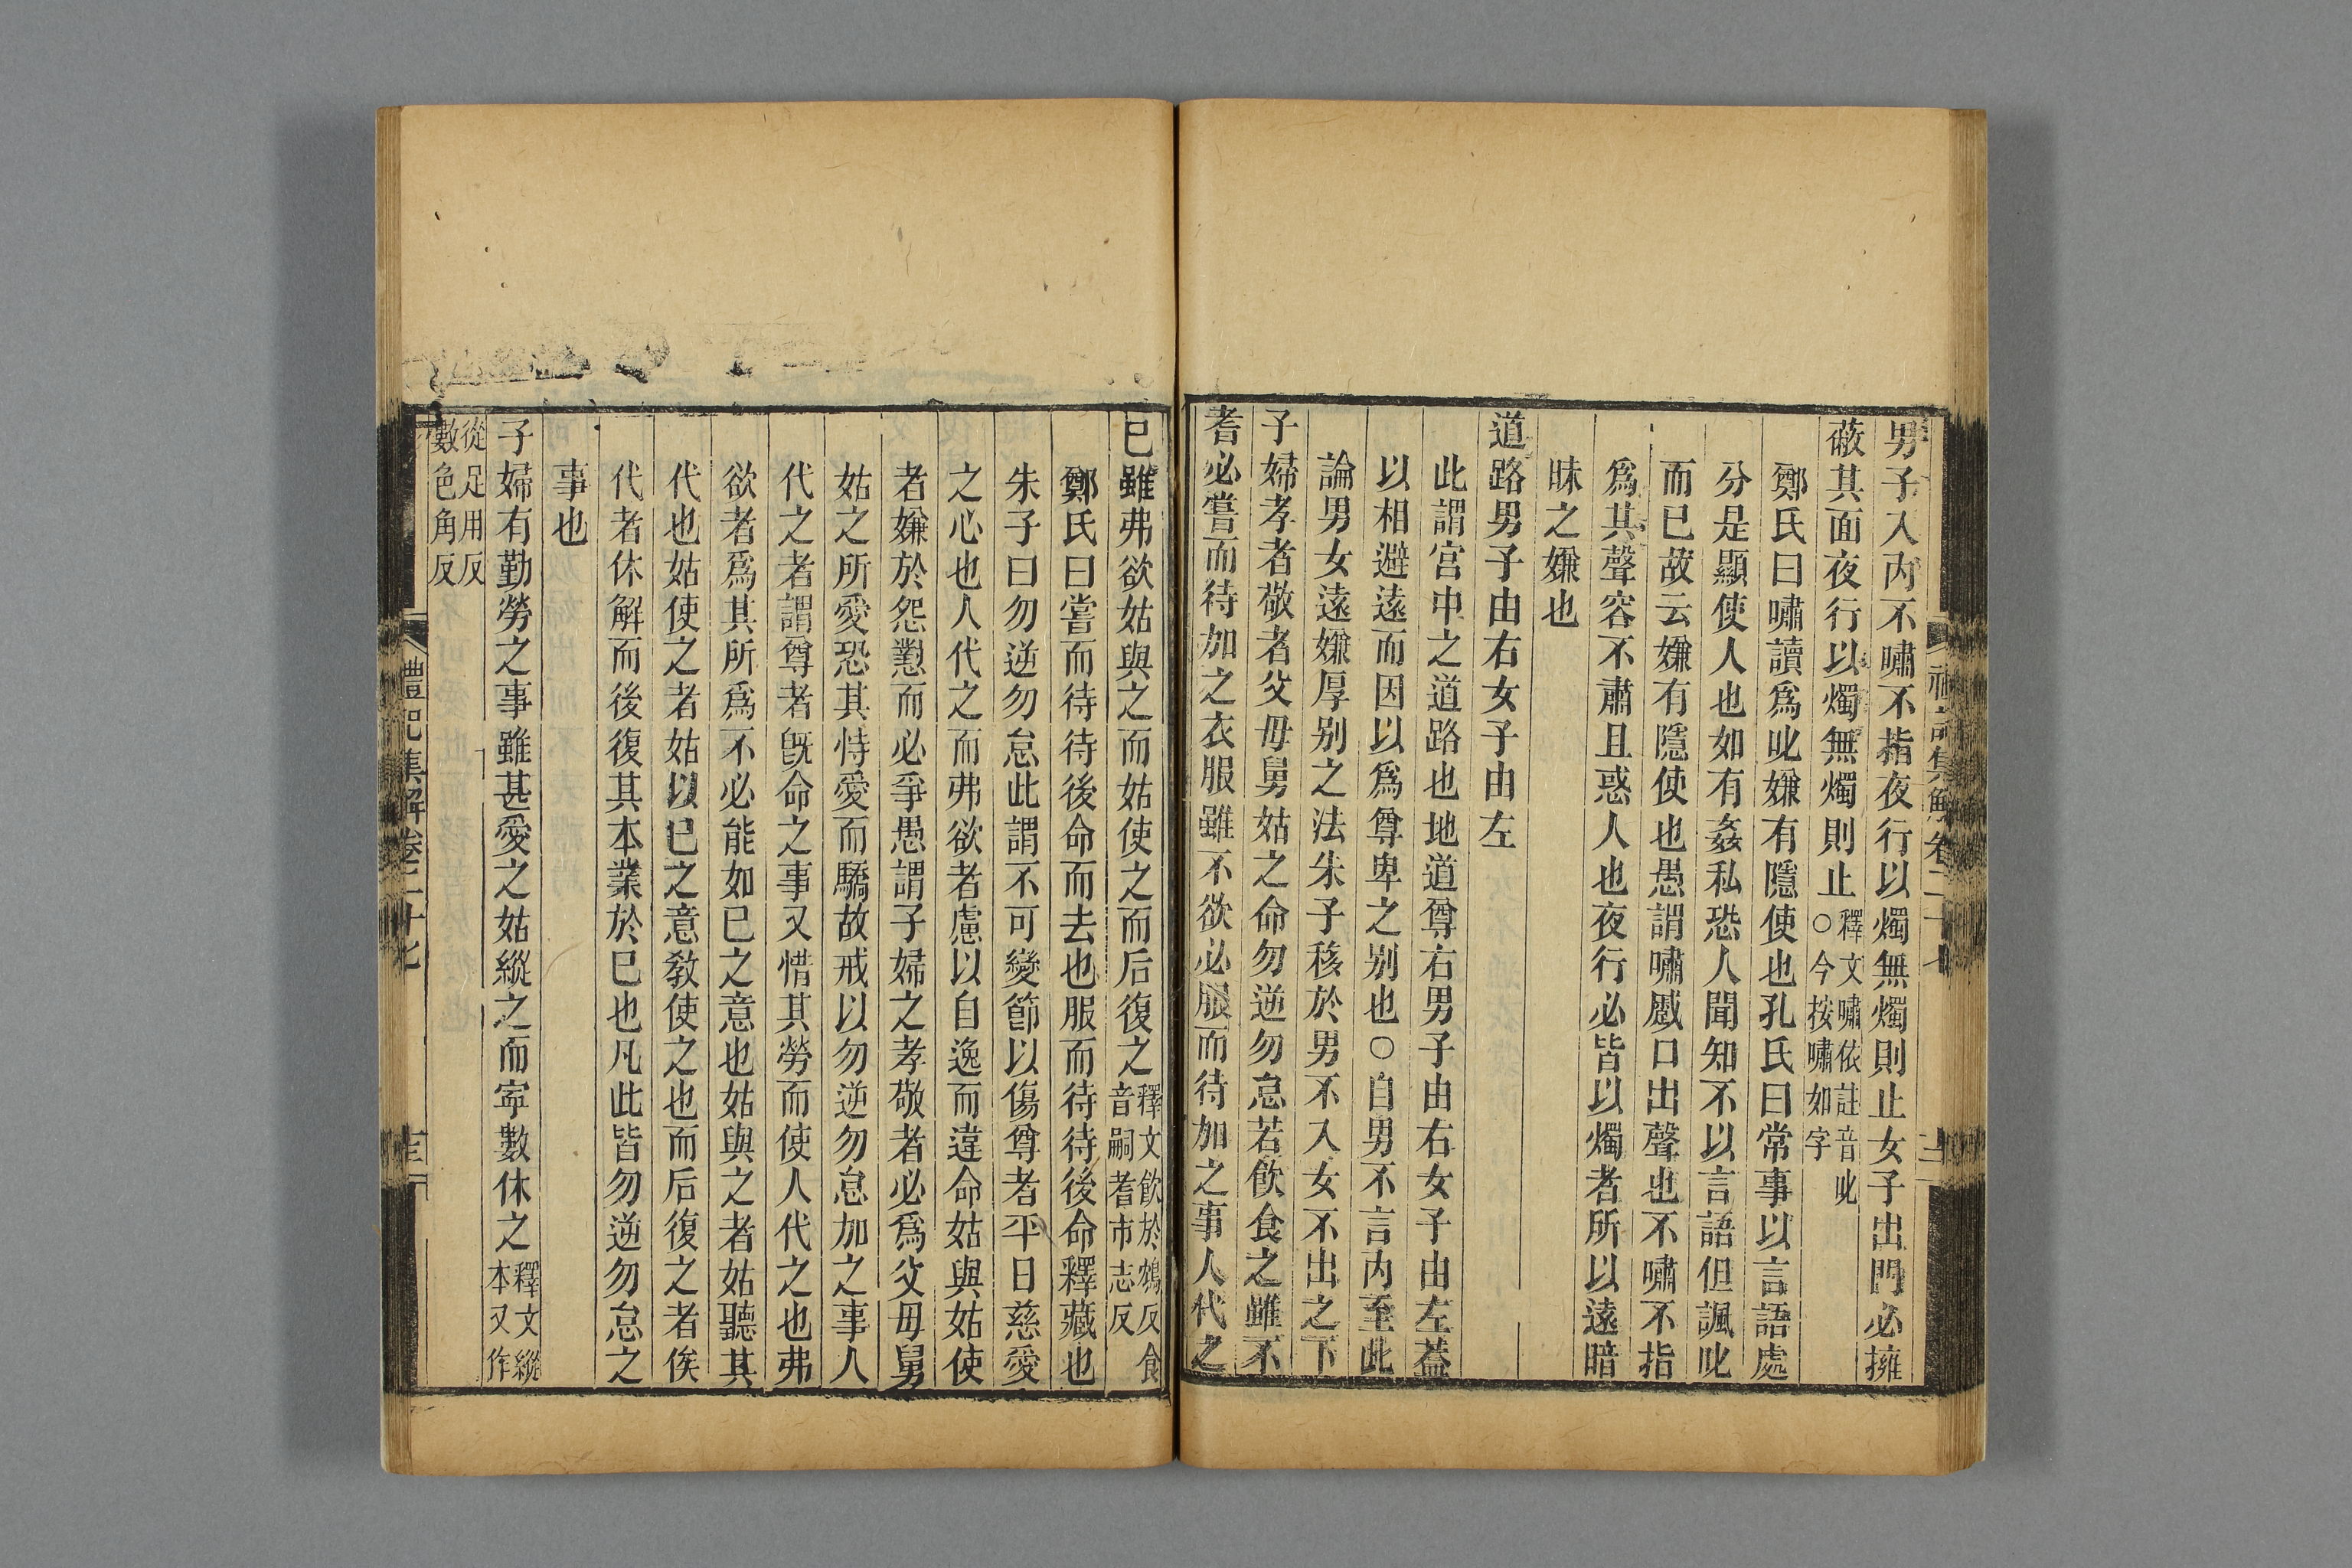 男子入內不嘯不指夜行以燭無燭則止女子出門必擁
蔽其面夜行以燭無燭則止釋文嘯依註音叱
○今按嘯如字
鄭氏曰嘯讀爲叱嫌有隱使也孔氏曰常事以言語處
分是顯使人也如有姦私恐人聞知不以言語但諷叱
而已故云嫌有隱使也愚謂嘯蹙口出聲也不嘯不指
爲其聲容不肅且惑人也夜行必皆以燭者所以遠暗
昧之嫌也
道路男子由右女子由左
此謂宮中之道路也地道尊右男子由右女子由左蓋
以相避遠而因以爲尊卑之别也○自男不言內至此
論男女遠嫌厚别之法朱子移於男不入女不出之下
子婦孝者敬者父母舅姑之命勿逆勿怠若飲食之雖不
耆必嘗而待加之衣服雖不欲必服而待加之事人代之
已雖弗欲姑與之而姑使之而后復之釋文飲於鴆反食
音嗣耆市志反
鄭氏曰嘗而待待後命而去也服而待待後命釋藏也
朱子曰勿逆勿怠此謂不可變節以傷尊者平日慈愛
之心也人代之而弗欲者慮以自逸而違命姑與姑使
者嫌於怨懟而必爭愚謂子婦之孝敬者必爲父母舅
姑之所愛恐其恃愛而驕故戒以勿逆勿怠加之事人
代之者謂尊者旣命之事又惜其勞而使人代之也弗
欲者爲其所爲不必能如已之意也姑與之者姑聽其
代也姑使之者姑以已之意敎使之也而后復之者俟
代者休解而後復其本業於已也凡此皆勿逆勿怠之
事也
子婦有勤勞之事雖甚愛之姑縱之而寧數休之釋文縱
本又作
從足用反
數色角反
禮記集解卷二十七